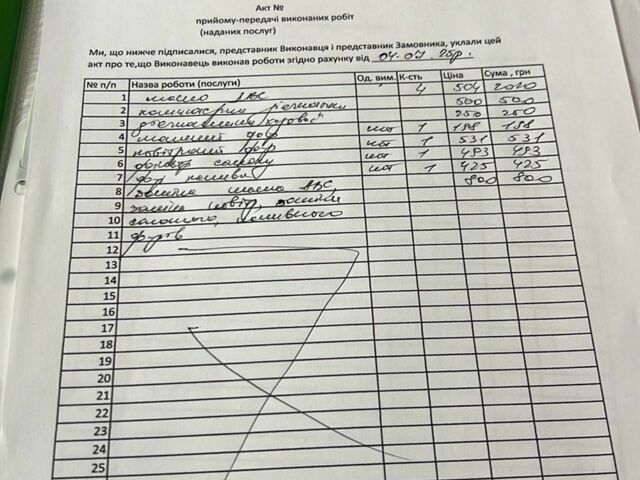 Акт №
прийому-передачі виконаних робіт
(наданих послуг)
Ми, що нижче підписалися, представник Виконавця і представник Замовника, уклали цей
акт про те,що Виконавець виконав роботи згідно рахунку від 04.07.25р.
№ п/п Назва роботи (послуги) Од. вим. К-сть Ціна Сума , грн
1 масло 4 504
2 500 500
3 250 250
4 масляний фтр шт 1 188 188
5 повітряний фтр шт 1 531 531
6 фільтр салону шт 1 493 493
7 фтр палива шт 1 425 425
8 заміна масла 800 800
9 заміна повітр, заміни
10 салонного, паливного
11 ф-рів
12
13
14
15
16
17
18
19
20
21
22
23
24
25